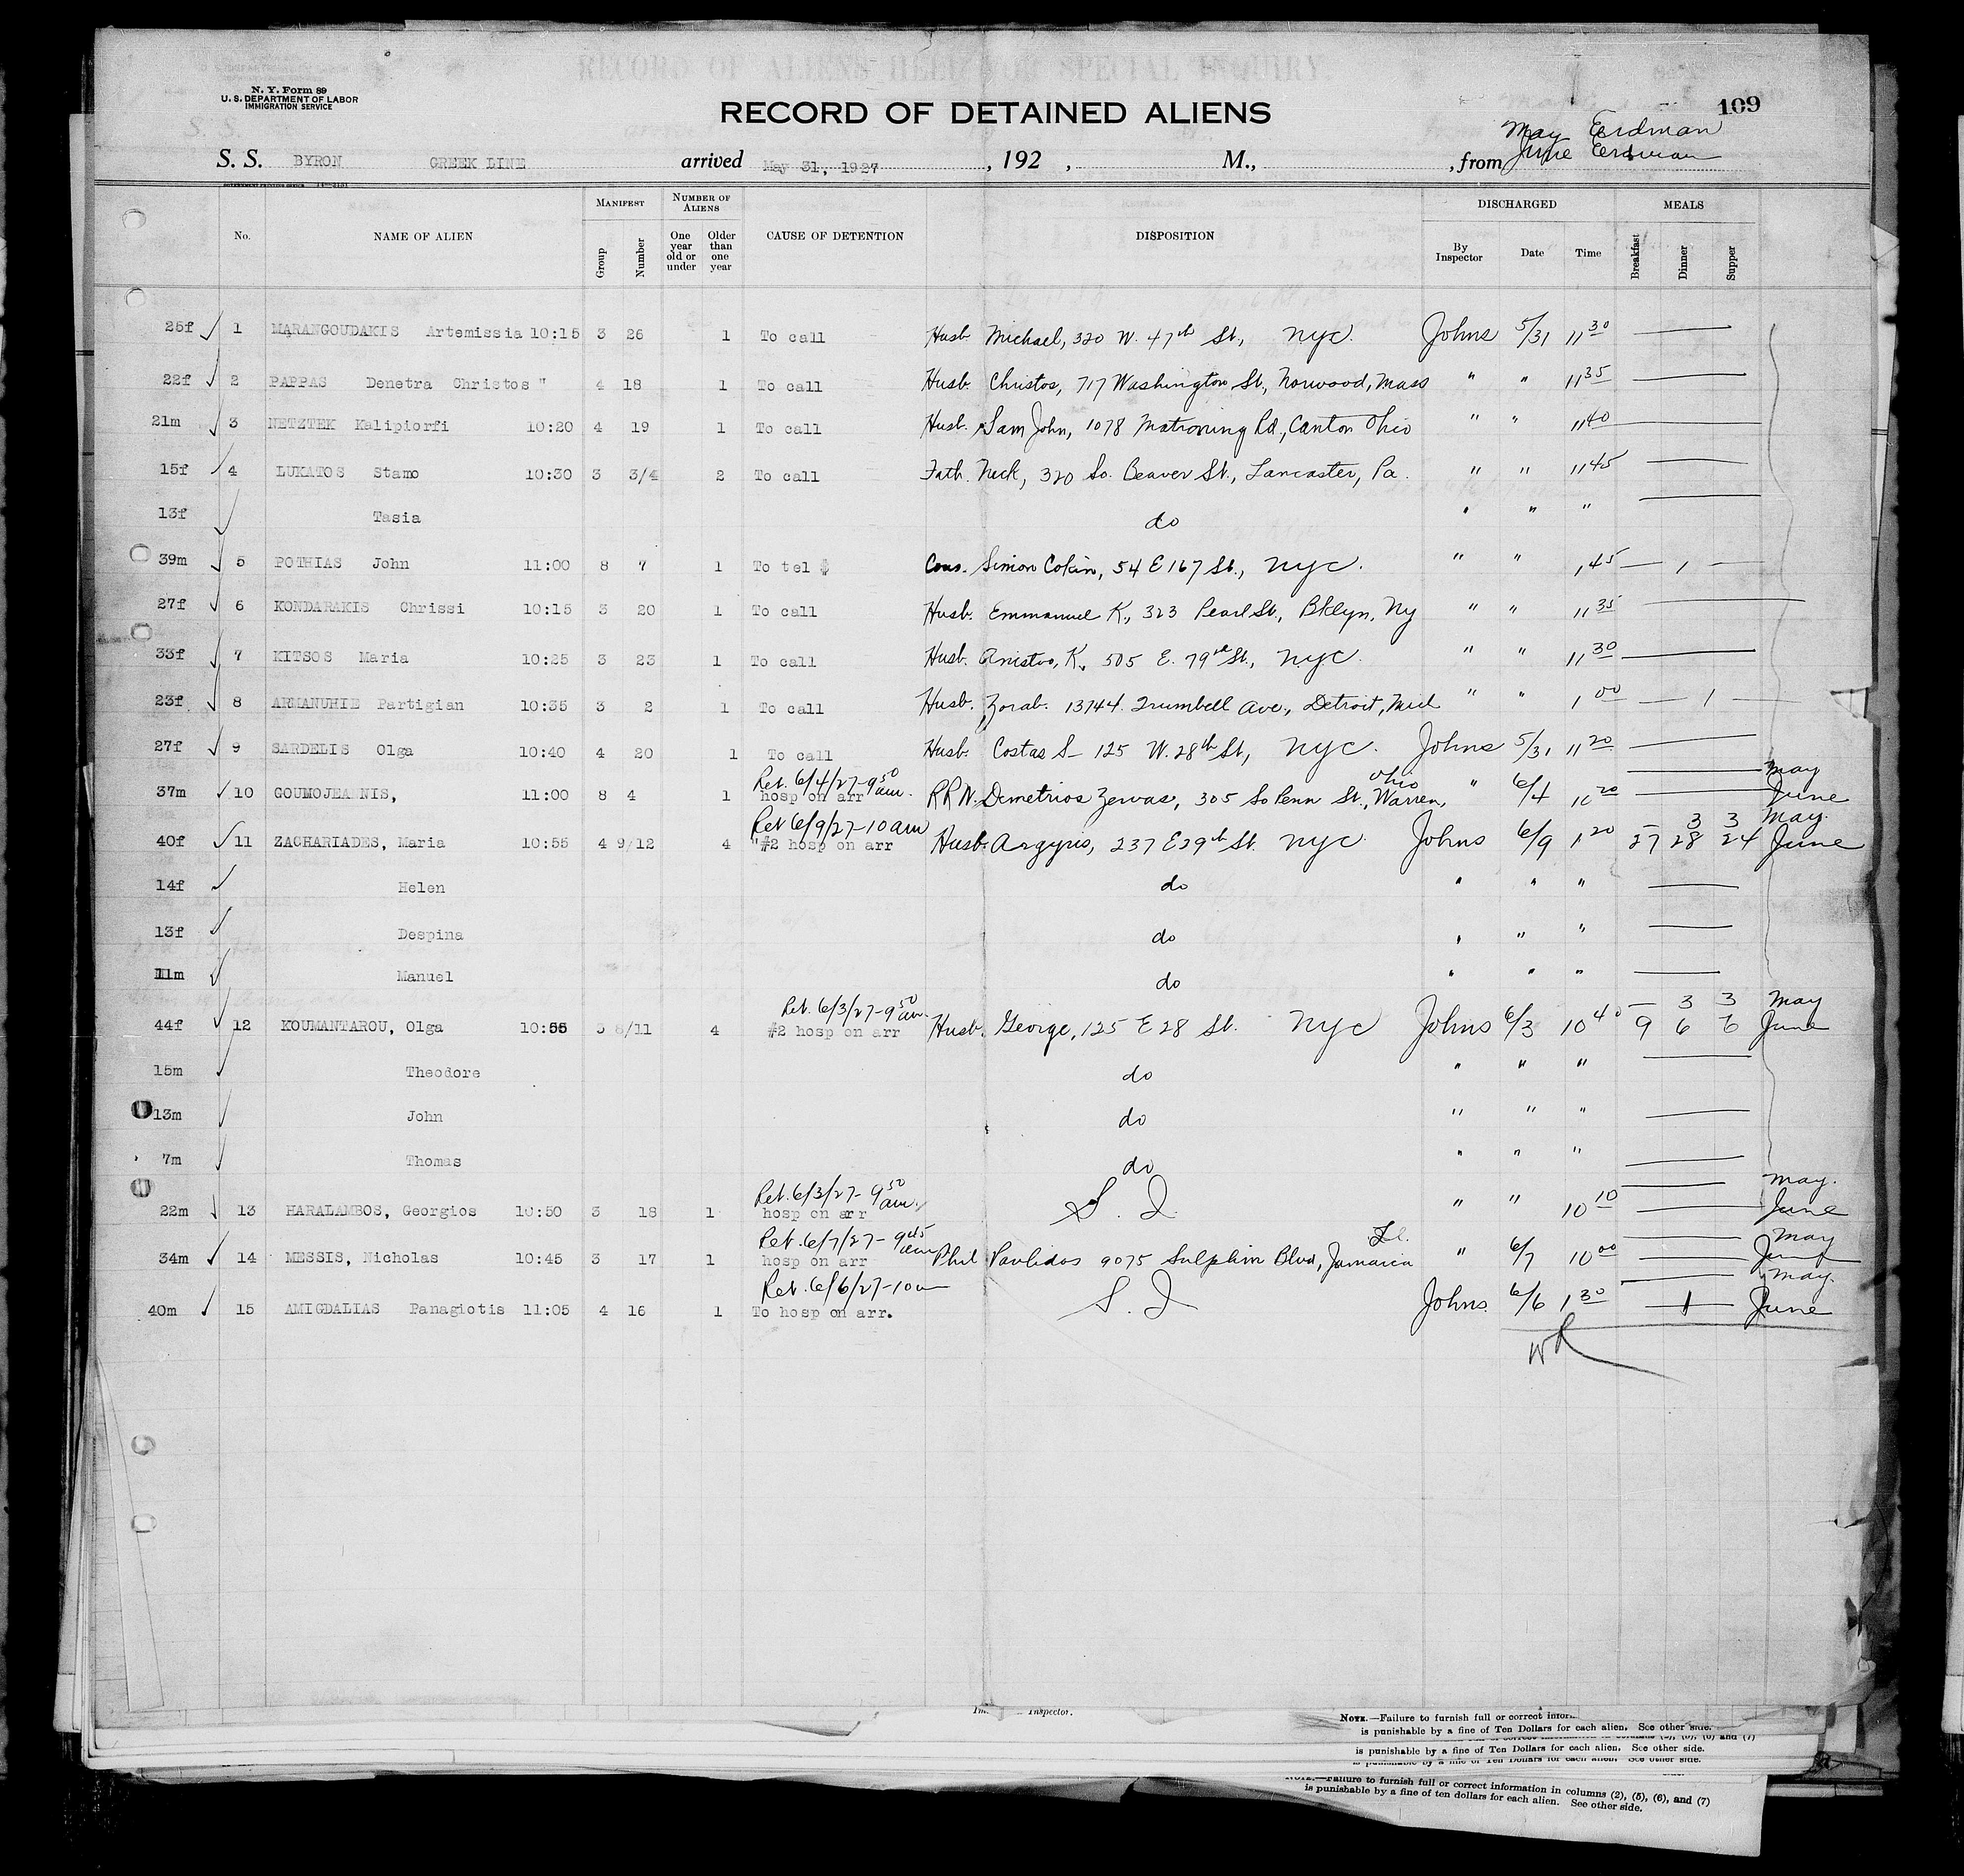 N. Y. Form 89
U. S. DEPARTMENT OF LABOR
IMMIGRATION SERVICE
RECORD OF DETAINED ALIENS
109
May Erdman
June Erdman
S. S. BYRON GREEK LINE arrived May 31, 1927, 192 , M., , from
MANIFEST NUMBER OF ALIENS DISCHARGED MEALS
No. NAME OF ALIEN Group Number One year old or under Older than one year CAUSE OF DETENTION DISPOSITION By Inspector Date Time Breakfast Dinner Supper
25f 1 MARANGOUDAKIS Artemissia 10:15 3 26 1 To call Husb. Michael, 320 W. 47th St., NYC. Johns 5/31 11 30
22f 2 PAPPAS Denetra Christos " 4 18 1 To call Husb. Christos, 717 Washington St., Norwood, Mass " " 11 35
21m 3 NETZTEK Kalipiorfi 10:20 4 19 1 To call Husb. Sam John, 1078 Rd., Canton Ohio " " 11 40
15f 4 LUKATOS Stamo 10:30 3 3/4 2 To call Fath. Nick, 320 So. Beaver St., Lancaster, Pa. " " 11 45
13f Tasia do " " "
39m 5 POTHIAS John 11:00 8 7 1 To tel $ Cous. Simon Cokin, 54 E 167 St., NYC. " " 1 45 1
27f 6 KONDARAKIS Chrissi 10:15 3 20 1 To call Husb. Emmanuel K, 323 Pearl St., Bklyn, Ny " " 11 35
33f 7 KITSOS Maria 10:25 3 23 1 To call Husb. K. 505 E. 79th St., NYC. " " 11 30
23f 8 ARMANUHIE Partigian 10:35 3 2 1 To call Husb. Zorab. 13744 Trumbell Ave., Detroit, Mich " " 1 00 1
27f 9 SARDELIS Olga 10:40 4 20 1 To call Husb. Costas S- 125 W. 28th St, NYC. Johns 5/31 11 20
Ret. 6/4/27-9 50 am. Ohio May
37m 10 GOUMOJEANNIS, 11:00 8 4 1 hosp on arr RRN. Demetrios Zervas, 305 So Penn St., Warren, " 6/4 10 20 June
Ret 6/9/27-10 am 3 3 May.
40f 11 ZACHARIADES, Maria 10:55 4 9/12 4 "#2 hosp on arr Husb. Argyris, 237 E 29th St. NYC. Johns 6/9 1 20 27 28 24 June
14f Helen do " " "
13f Despina do " " "
11m Manuel do " " "
Ret. 6/3/27-9 50 am. 3 3 May
44f 12 KOUMANTAROU, Olga 10:55 3 8/11 4 #2 hosp on arr Husb. George, 125 E 28 St. NYC Johns 6/3 10 40 9 6 6 June
15m Theodore do " " "
13m John do " " "
7m Thomas do " " "
Ret. 6/3/27-9 50 am. May.
22m 13 HARALAMBOS, Georgios 10:50 3 18 1 hosp on arr S. I. " " 10 10 June
Ret. 6/7/27-9 45 am L.I. May
34m 14 MESSIS, Nicholas 10:45 3 17 1 hosp on arr Phil Pavlidos 9075 Sulphin Blvd, Jamaica " 6/7 10 00 June
Ret. 6/6/27-10 am May.
40m 15 AMIGDALIAS Panagiotis 11:05 4 16 1 To hosp on arr. S. I. Johns. 6/6 1 30 1 June
WR
Inspector.
NOTE.—Failure to furnish full or correct
is punishable by a fine of Ten Dollars for each alien. See other side.
is punishable by a fine of Ten Dollars for each alien. See other side.
NOTE.—Failure to furnish full or correct information in columns (2), (5), (6), and (7)
is punishable by a fine of ten dollars for each alien. See other side.